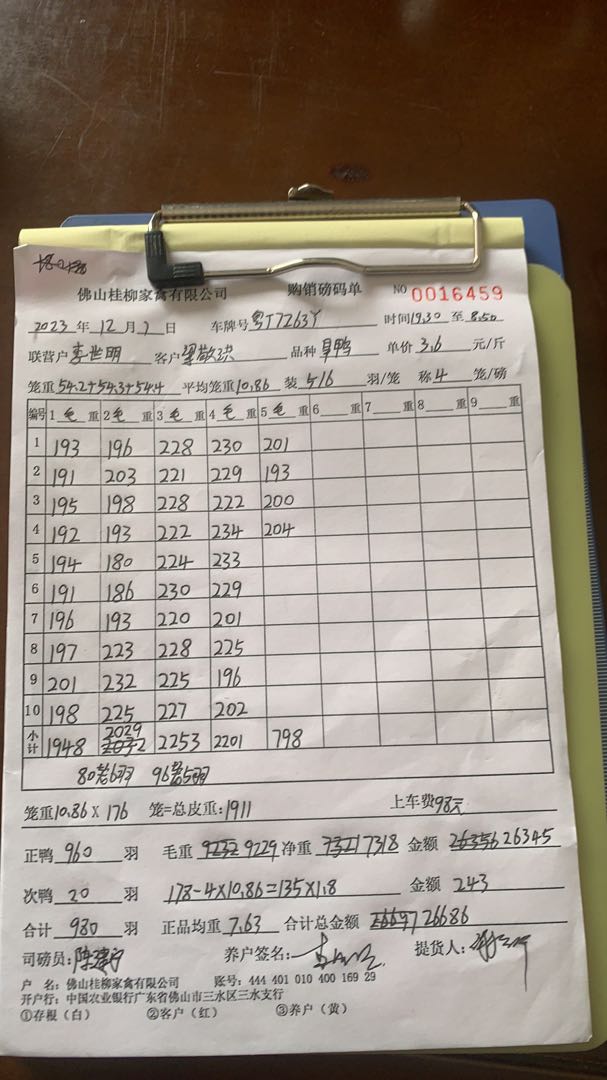 佛山桂柳家禽有限公司 购销磅码单 NO 0016459
2023年12月7日 车牌号粤J7263Y 时间19.30至8.50
联营户李世明 客户梁敬洪 品种旱鸭 单价3.6元/斤
笼重54.2+54.3+54.4 平均笼重10.86 装5/6羽/笼 称4笼/磅
编号 1毛重 2毛重 3毛重 4毛重 5毛重 6重 7重 8重 9重
1 193 196 228 230 201
2 191 203 221 229 193
3 195 198 228 222 200
4 192 193 222 234 204
5 194 180 224 233
6 191 186 230 229
7 196 193 220 201
8 197 223 228 225
9 201 232 225 196
10 198 225 227 202
小计 1948 2029 2253 2201 798
80笼6羽 96笼5羽
笼重10.86×176笼=总皮重:1911 上车费98元
正鸭960羽 毛重9232 9229 净重7321 7318 金额26356 26345
次鸭20羽 178-4×10.86=135×1.8 金额243
合计980羽 正品均重7.63 合计总金额26697 26686
司磅员: 养户签名: 提货人:
户 名:佛山桂柳家禽有限公司 账号:444 401 010 400 169 29
开户行:中国农业银行广东省佛山市三水区三水支行
①存根(白) ②客户(红) ③养户(黄)